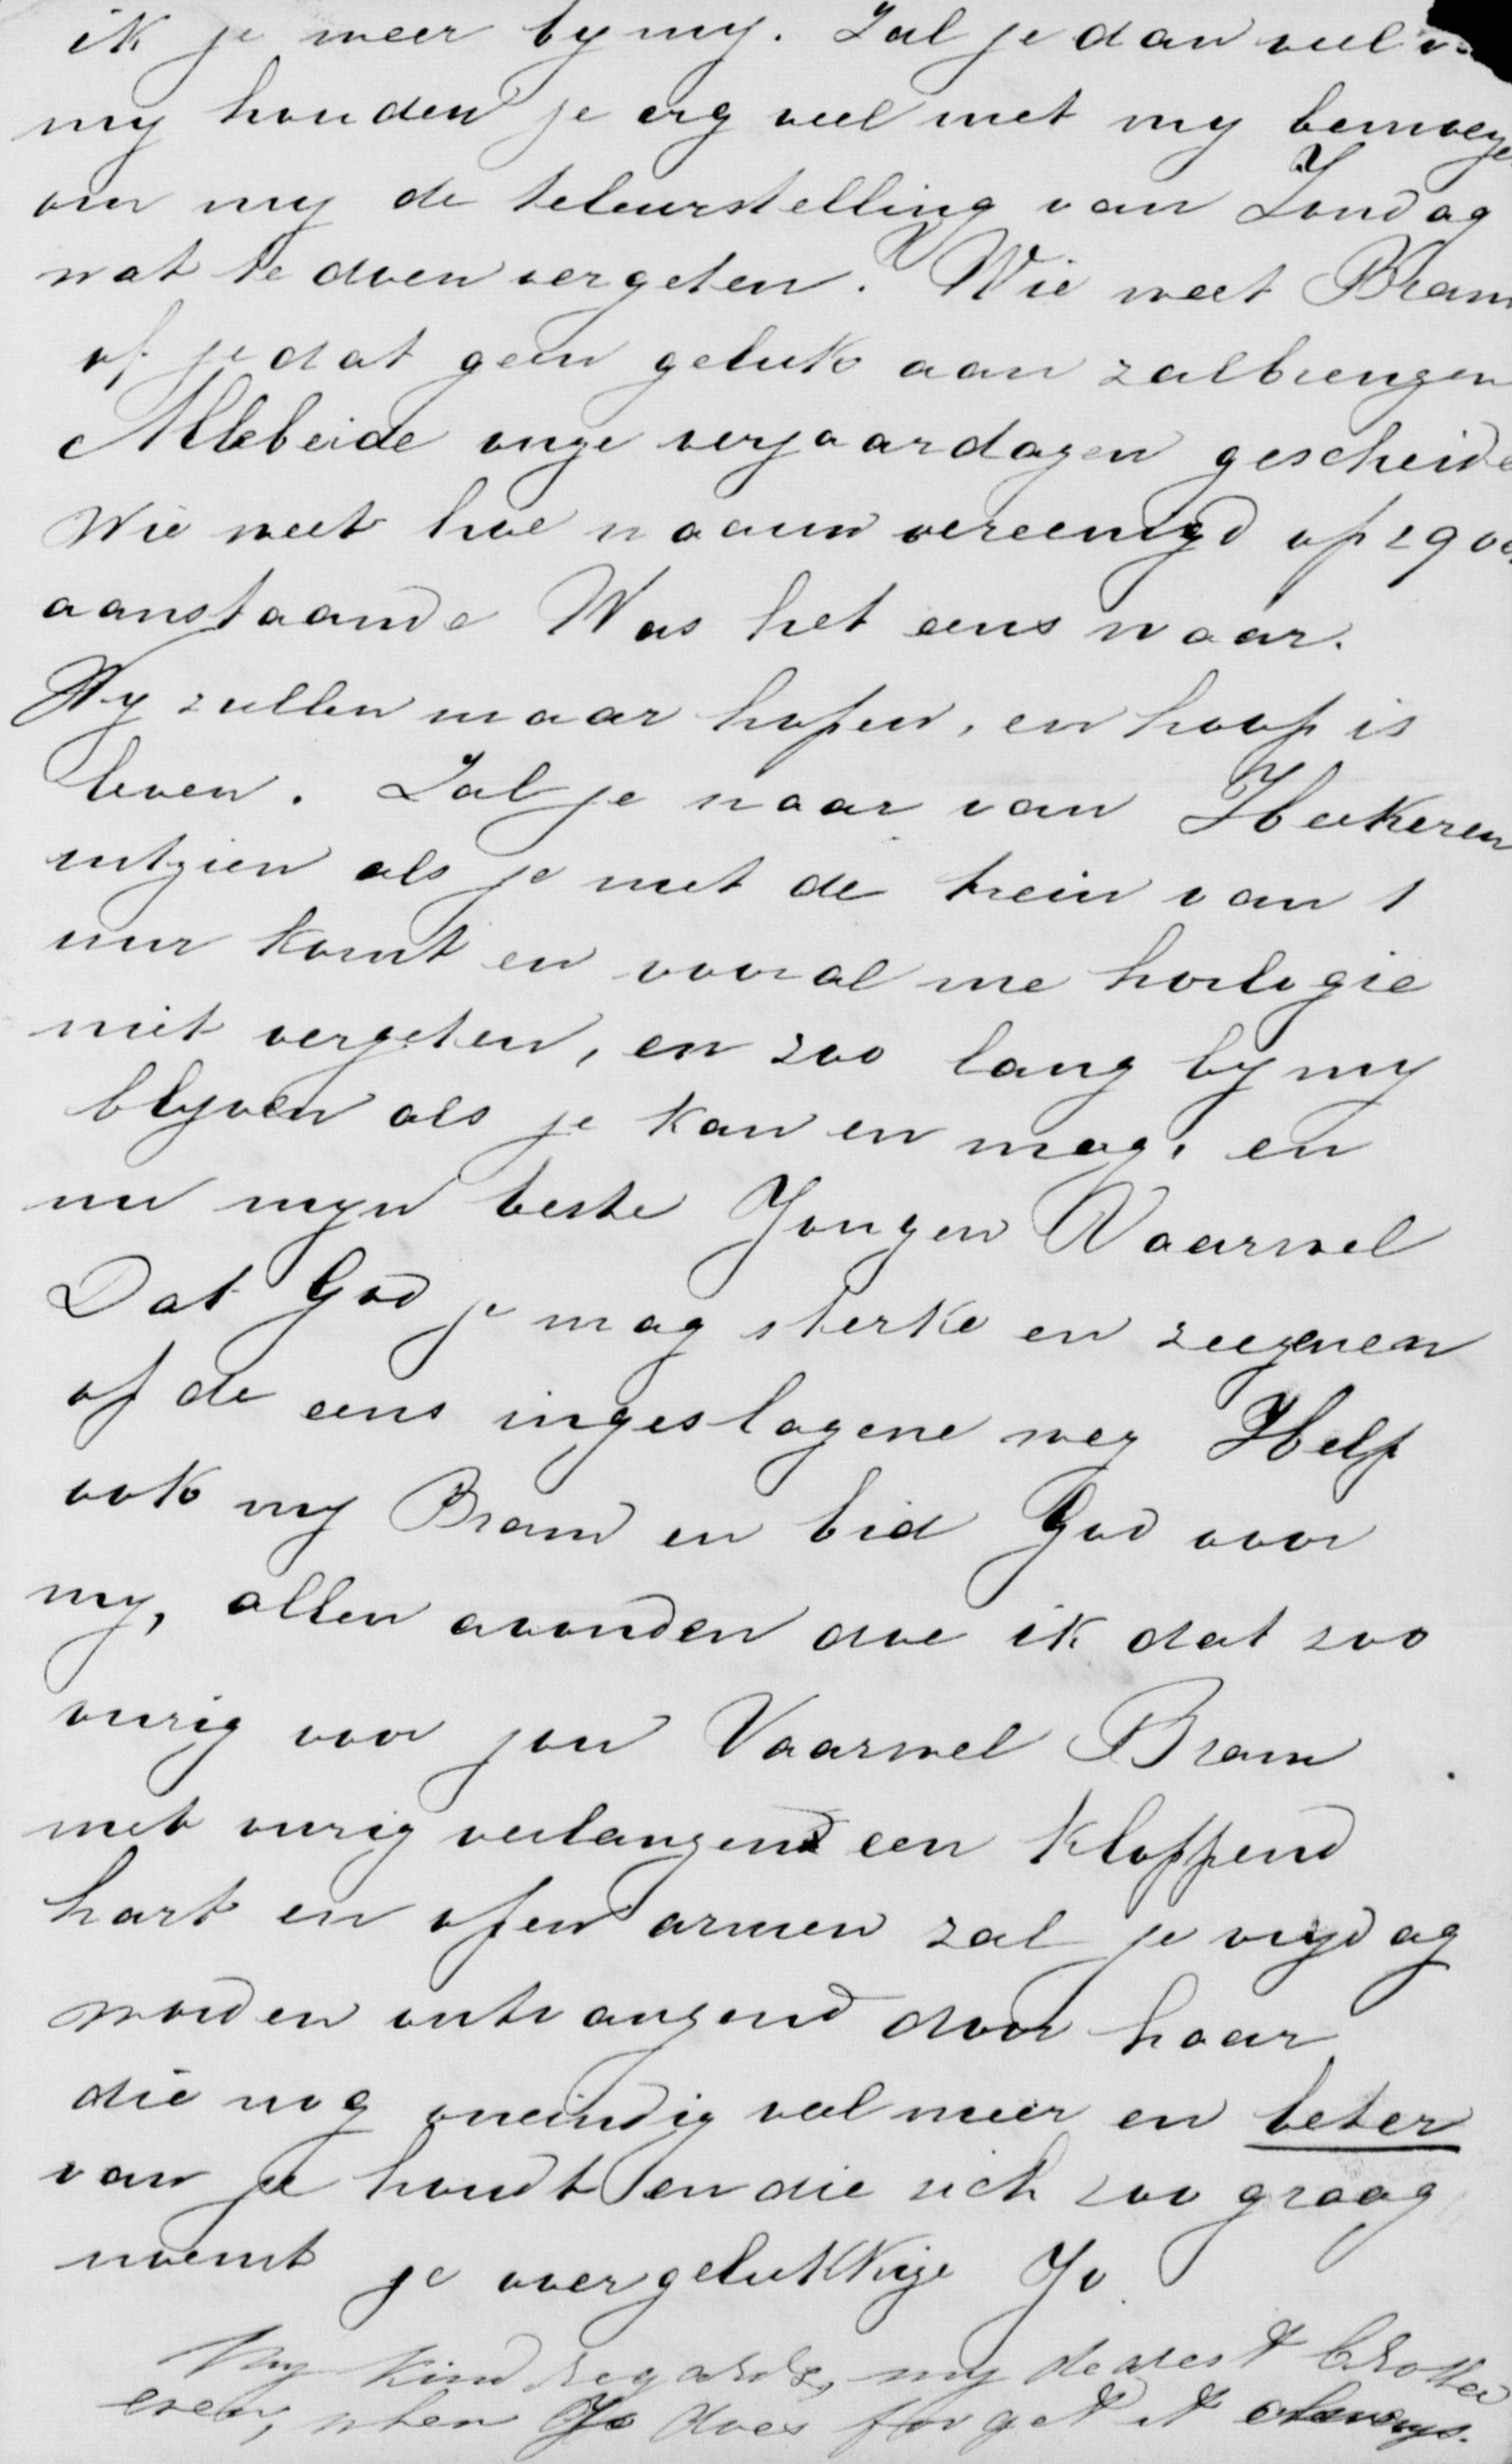 ik je meer by my. Zal je dan veel v
my houden je erg veel met my bemoeye
om my de teleurstelling van Zondag
wat te doen vergeten. Wie weet Bram
of je dat geen geluk aan zal brengen
Allebeide onze verjaardagen gescheide
Wie weet hoe naauw vereenigd op 29
aanstaande Was het eens waar.
Wy zullen maar hopen, en hoop is
leven. Zal je naar van Heekeren
uitzien als je met de trein van 1
uur komt en vooral me horlogie
niet vergeten, en zoo lang by my
blyven als je kan en mag, en
nu myn beste Jongen Vaarwel
Dat God je mag sterke en zeegenen
op de eens ingeslagene weg Help
ook my Bram en bid God voor
my, allen avonden doe ik dat zoo
vurig voor jou Vaarwel Bram
met vurig verlangend een kloppend
hart en open armen zal je vrydag
worden ontvangend door haar
die nog oneindig veel meer en beter
van je houdt en die zich zoo graag
noemt je overgelukkige Jo
My kind regards, my dearest brother
even, when Jo does forget it always.